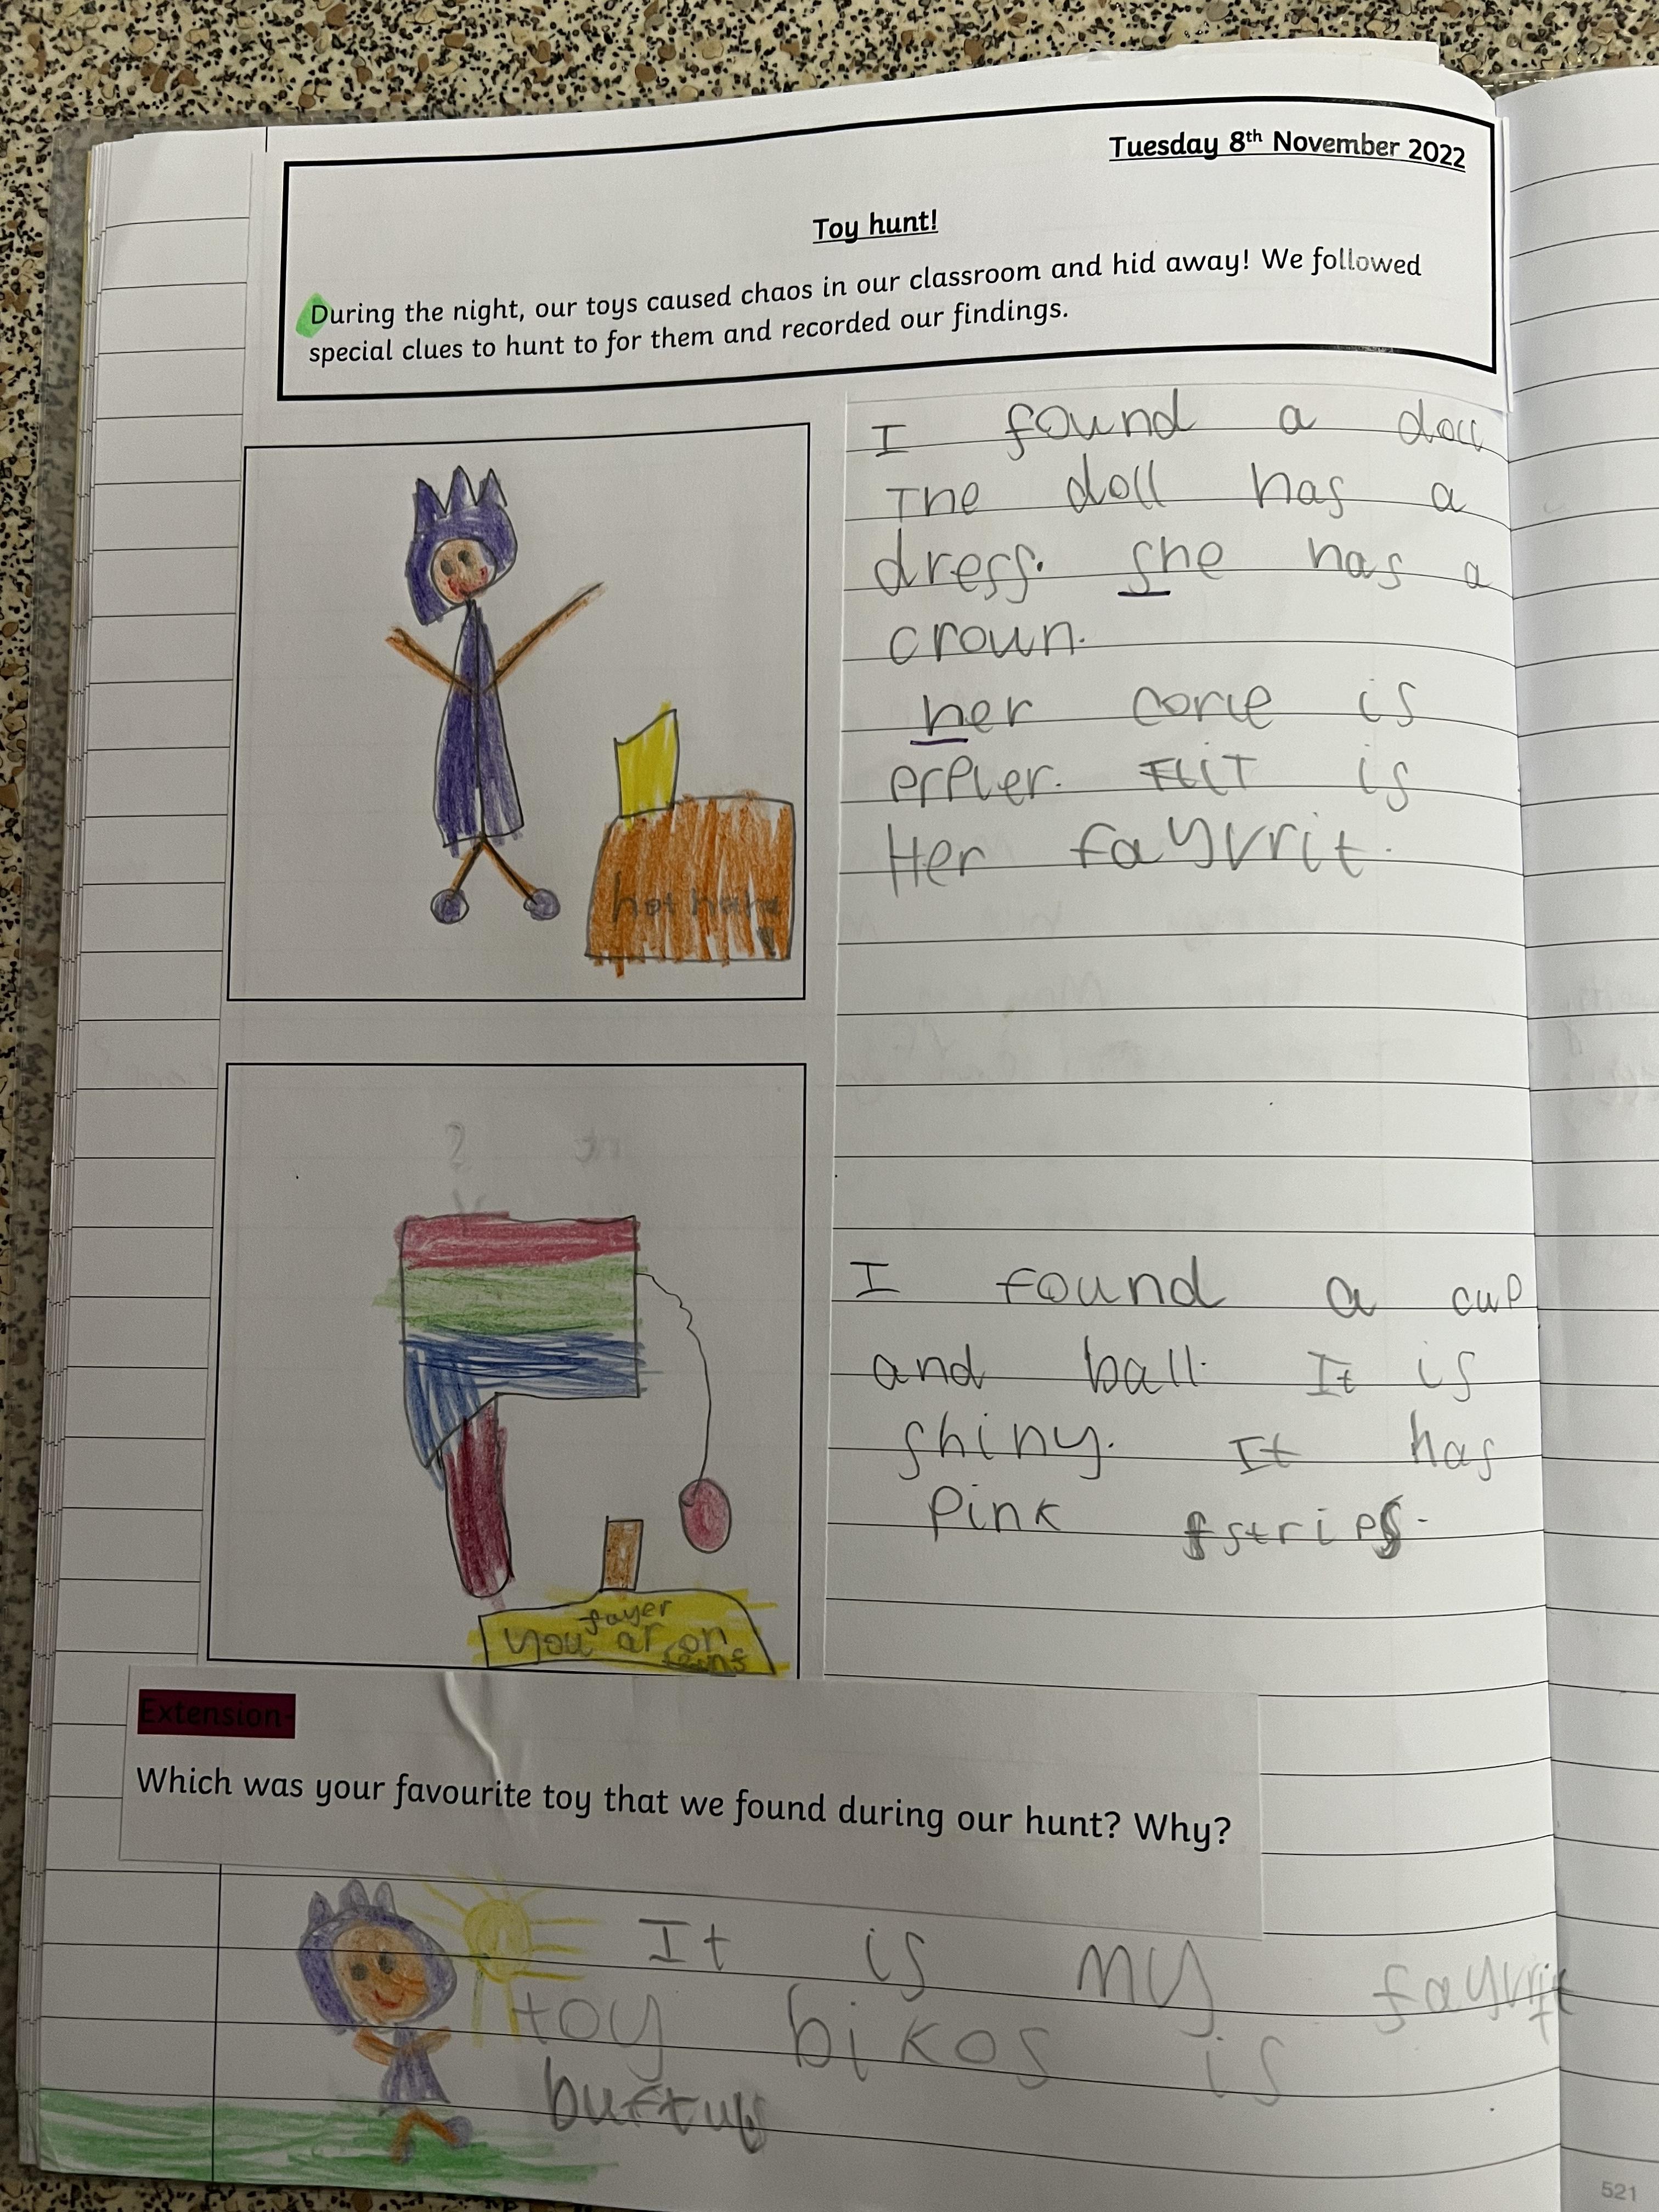 Tuesday 8th November 2022
Toy hunt!
During the night, our toys caused chaos in our classroom and hid away! We followed
special clues to hunt to for them and recorded our findings.
I found a doll
The doll has a
dress. she has a
croun.
her corle is
prpler. It is
Her fayvrit.
hot
I found a cup
and ball. It is
shiny. It has
Pink stries.
fayer
you ar on
Extension
Which was your favourite toy that we found during our hunt? Why?
It is my fayvrit
toy bikos is
521